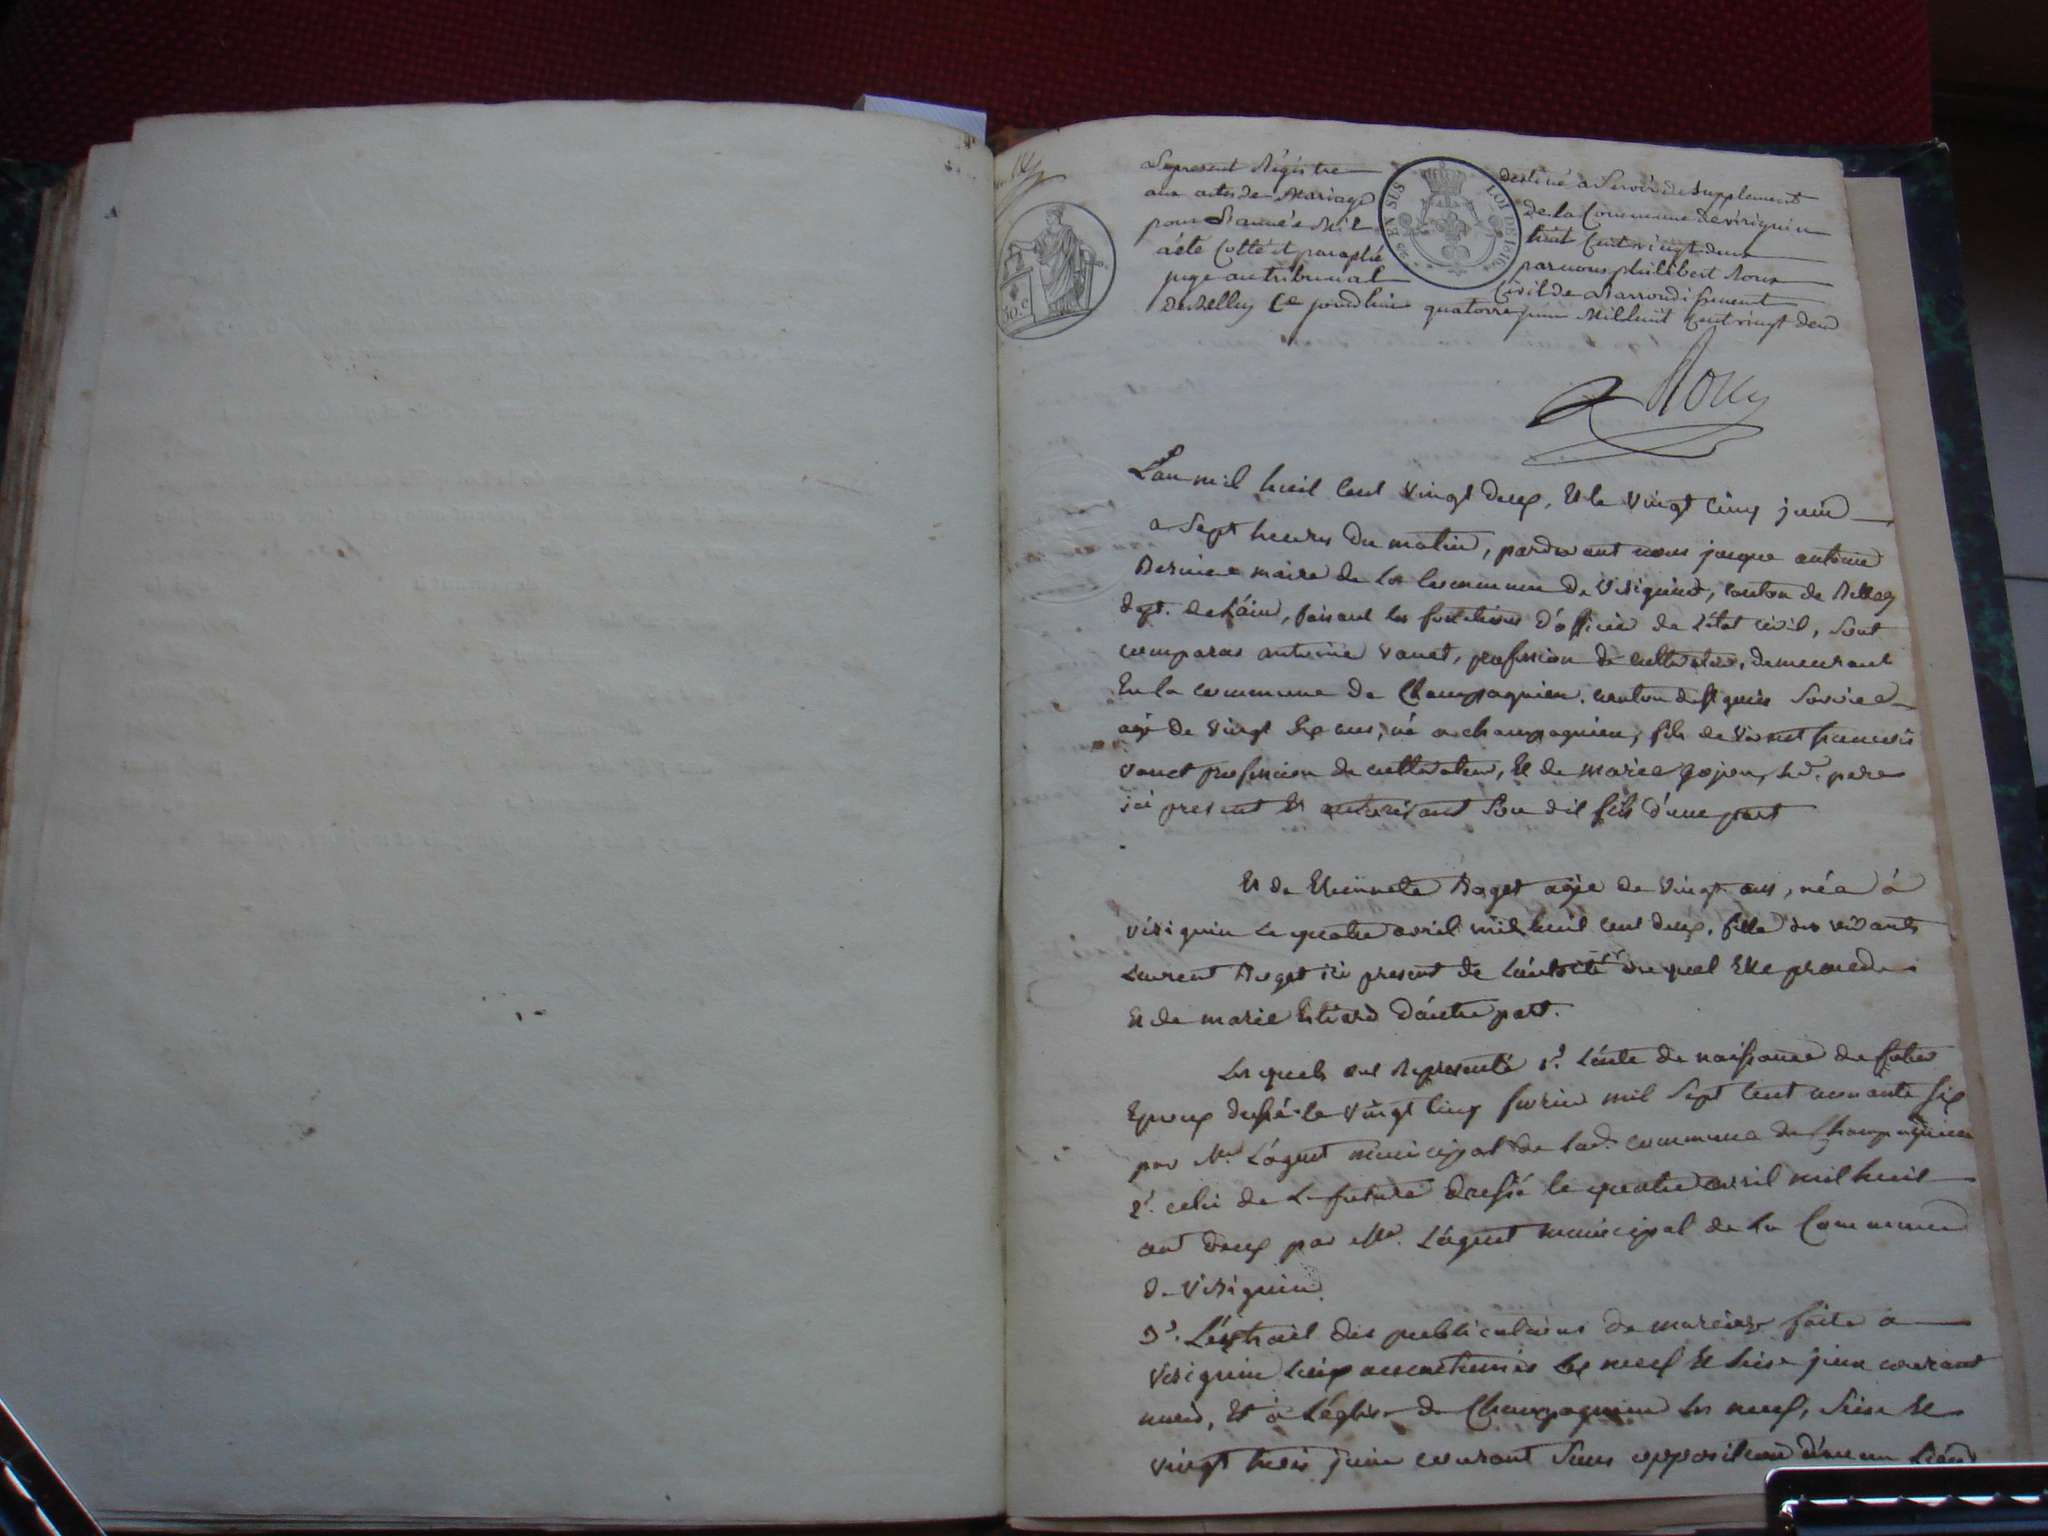 Le present Régistre destiné a Servir de Supplement
aux actes de Mariage de la Commune de virignin
pour L'année Mil huit Cent vingt deux
a été Cotté et paraphé par nous philibert Roux
juge au tribunal Civil de L'arrondissement
de Belley Ce jourd'hui quatorze juin Mil huit Cent vingt deux
25 EN SUS LOI DE 1816
50.C
Roux
L'an mil huit Cent vingt deux, Et le vingt Cinq juin
a Sept heures du matin, pardevant nous jacque antoine
maire de la Commune de Virignin, Canton de Belley
dpt. de L'ain, faisant les fonctions d'officier de L'état Civil, Sont
comparus antoine vanet, profession de cultivateur, demeurant
En la commune de Champagnieu, canton de St genis Savoie
agé de vingt Six ans, né a champagnieu, fils de vanet francois
vanet profession de cultivateur, Et de marie gojon, Led. pere
ici present Et autorisant Son dit fils d'une part
Et de Etiennete Baget agée de vingt ans, née à
virignin Le quatre avril mil huit Cent deux, fille des vivants
Laurent Baget ici present de L'autorité du quel Elle procede
Et de marie d'autre part.
Les quels ont Représenté 1°. L'acte de naissance du futur
Epoux dressé le vingt Cinq mil Sept Cent nonante Six
par Mr. L'agent municipal de lad. commune de Champagnieu
2°. celui de la future dressé le quatre avril mil huit
cent deux par Mr. L'agent municipal de la Commune
de Virignin.
3°. L'extrait des publications de mariage faite a
Virignin Lieux accoutumés Les neuf Et Seize juin courant
mois, Et à L'église de Champagnieu les neuf, Seize Et
vingt trois juin courant Sans opposition d'aucun Lieu